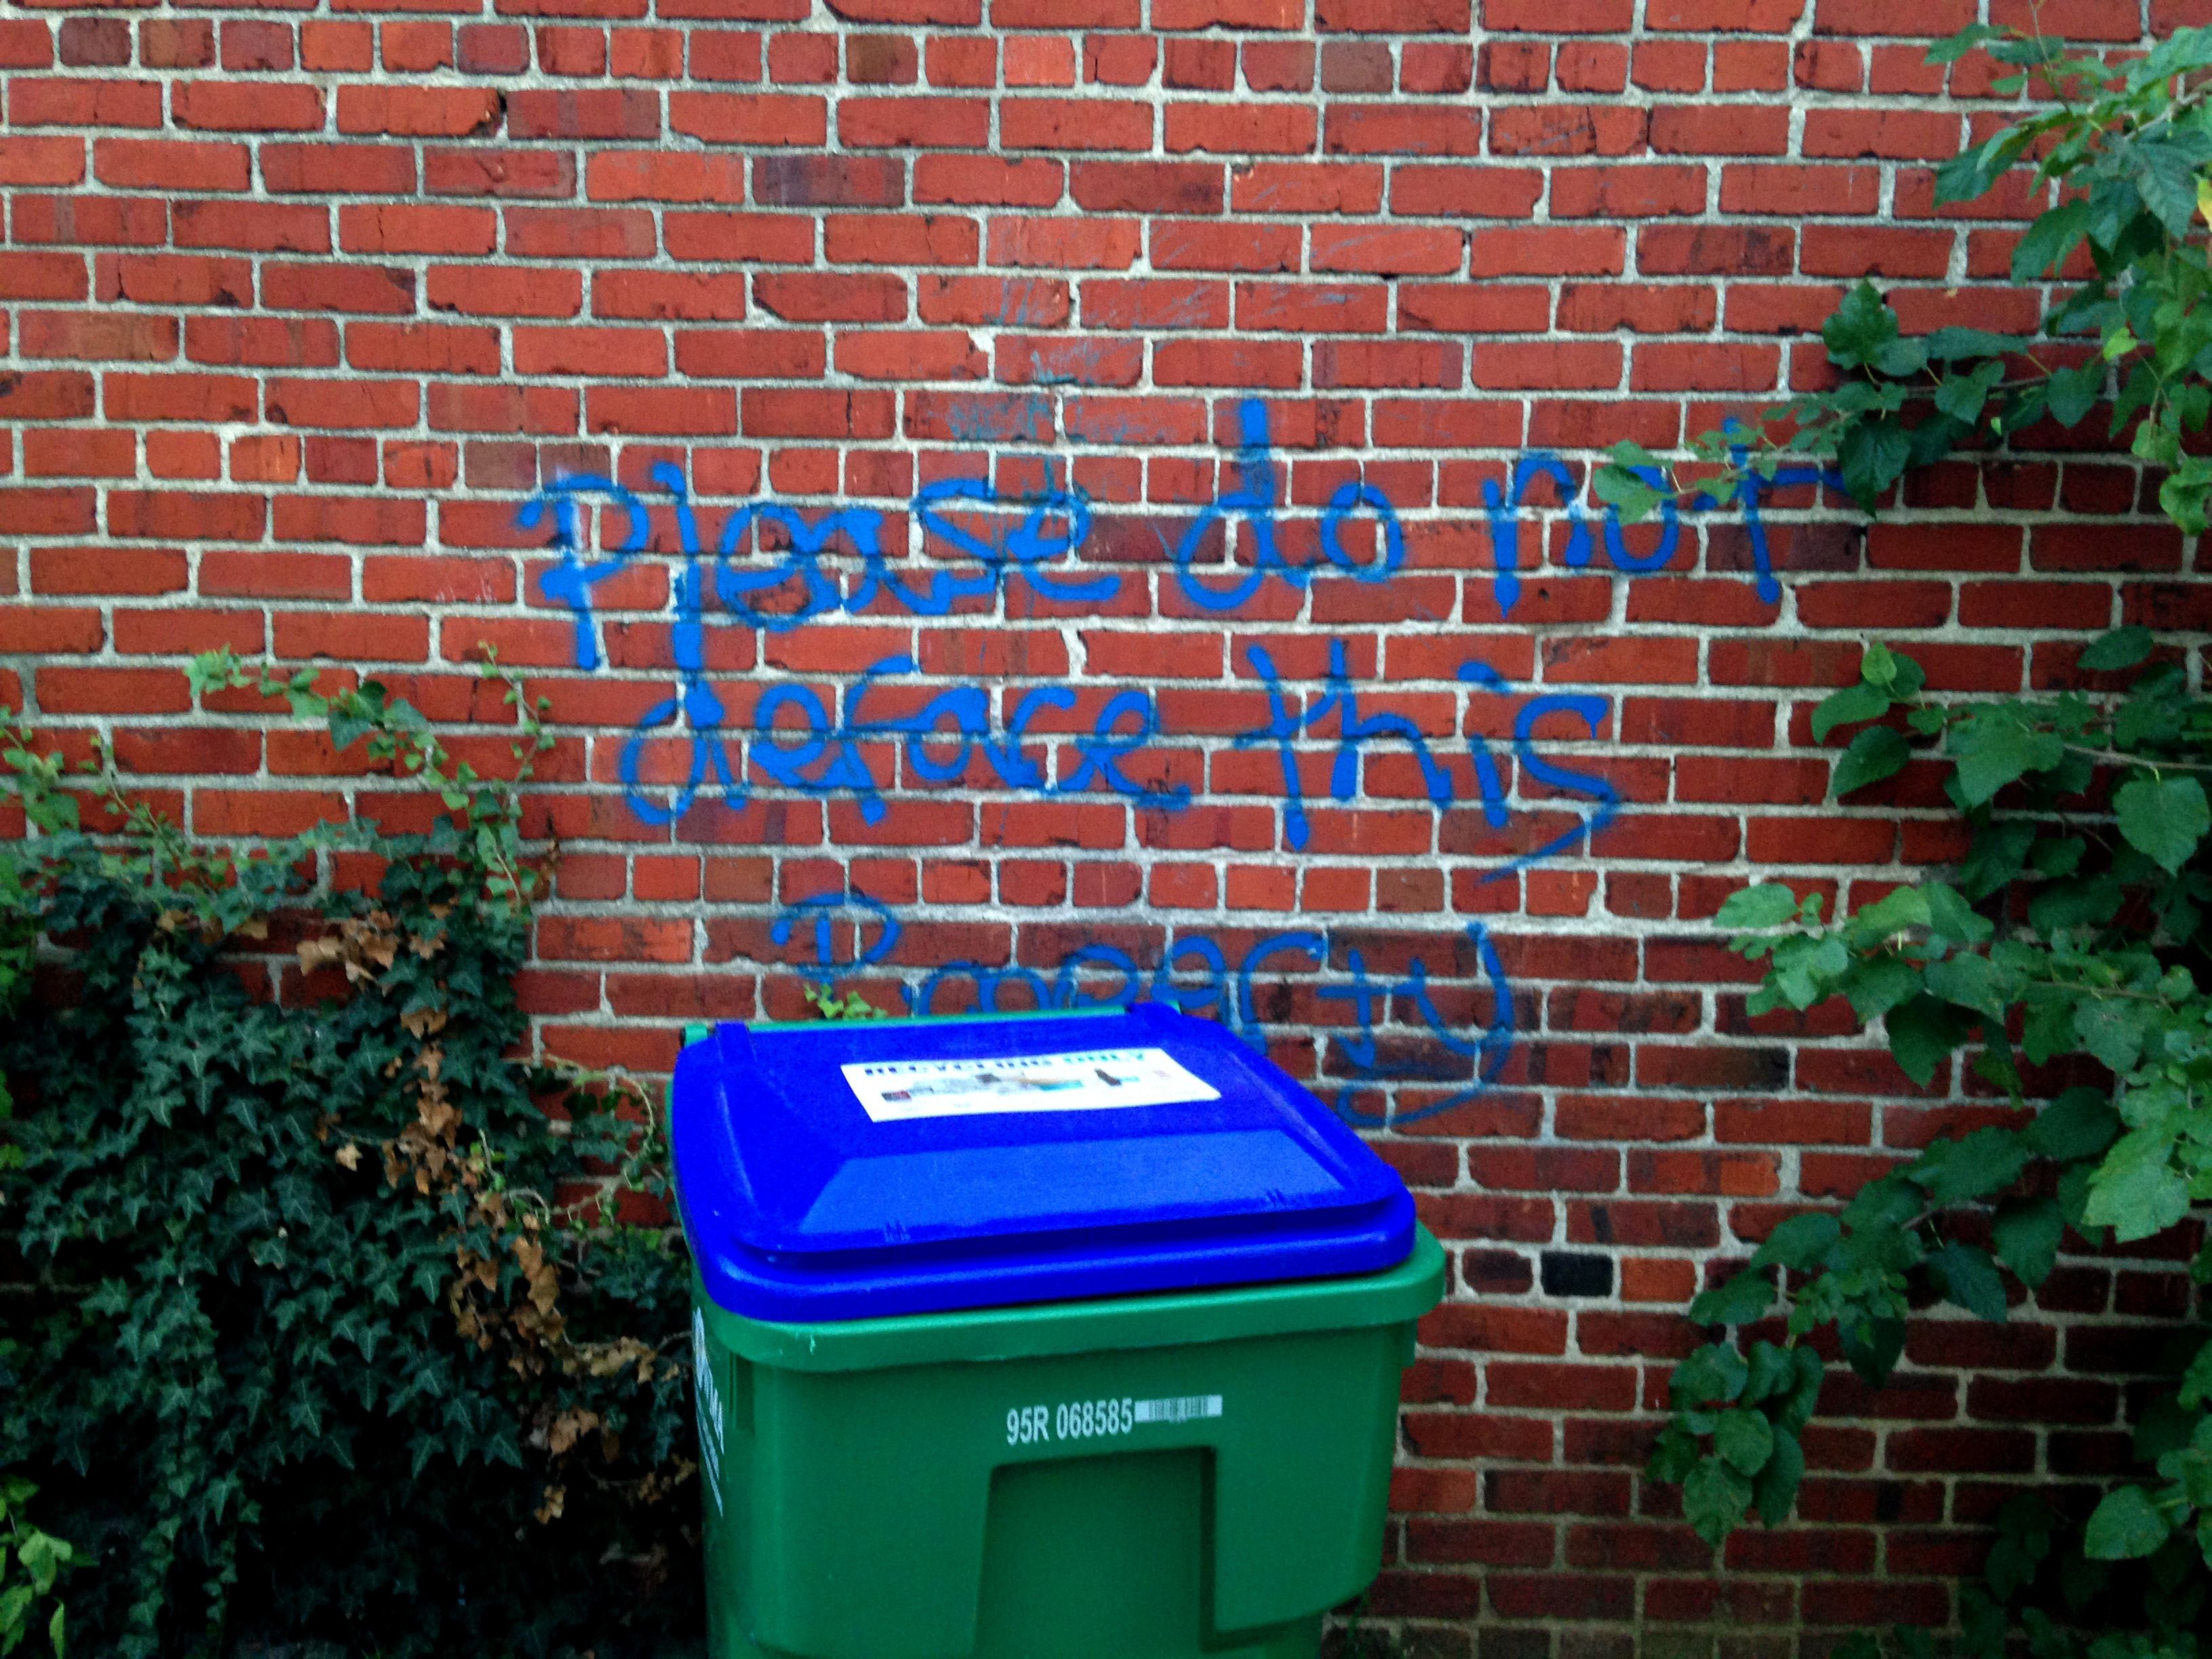 Please do not
deface this
Property
RECYCLING ONLY
95R 068585